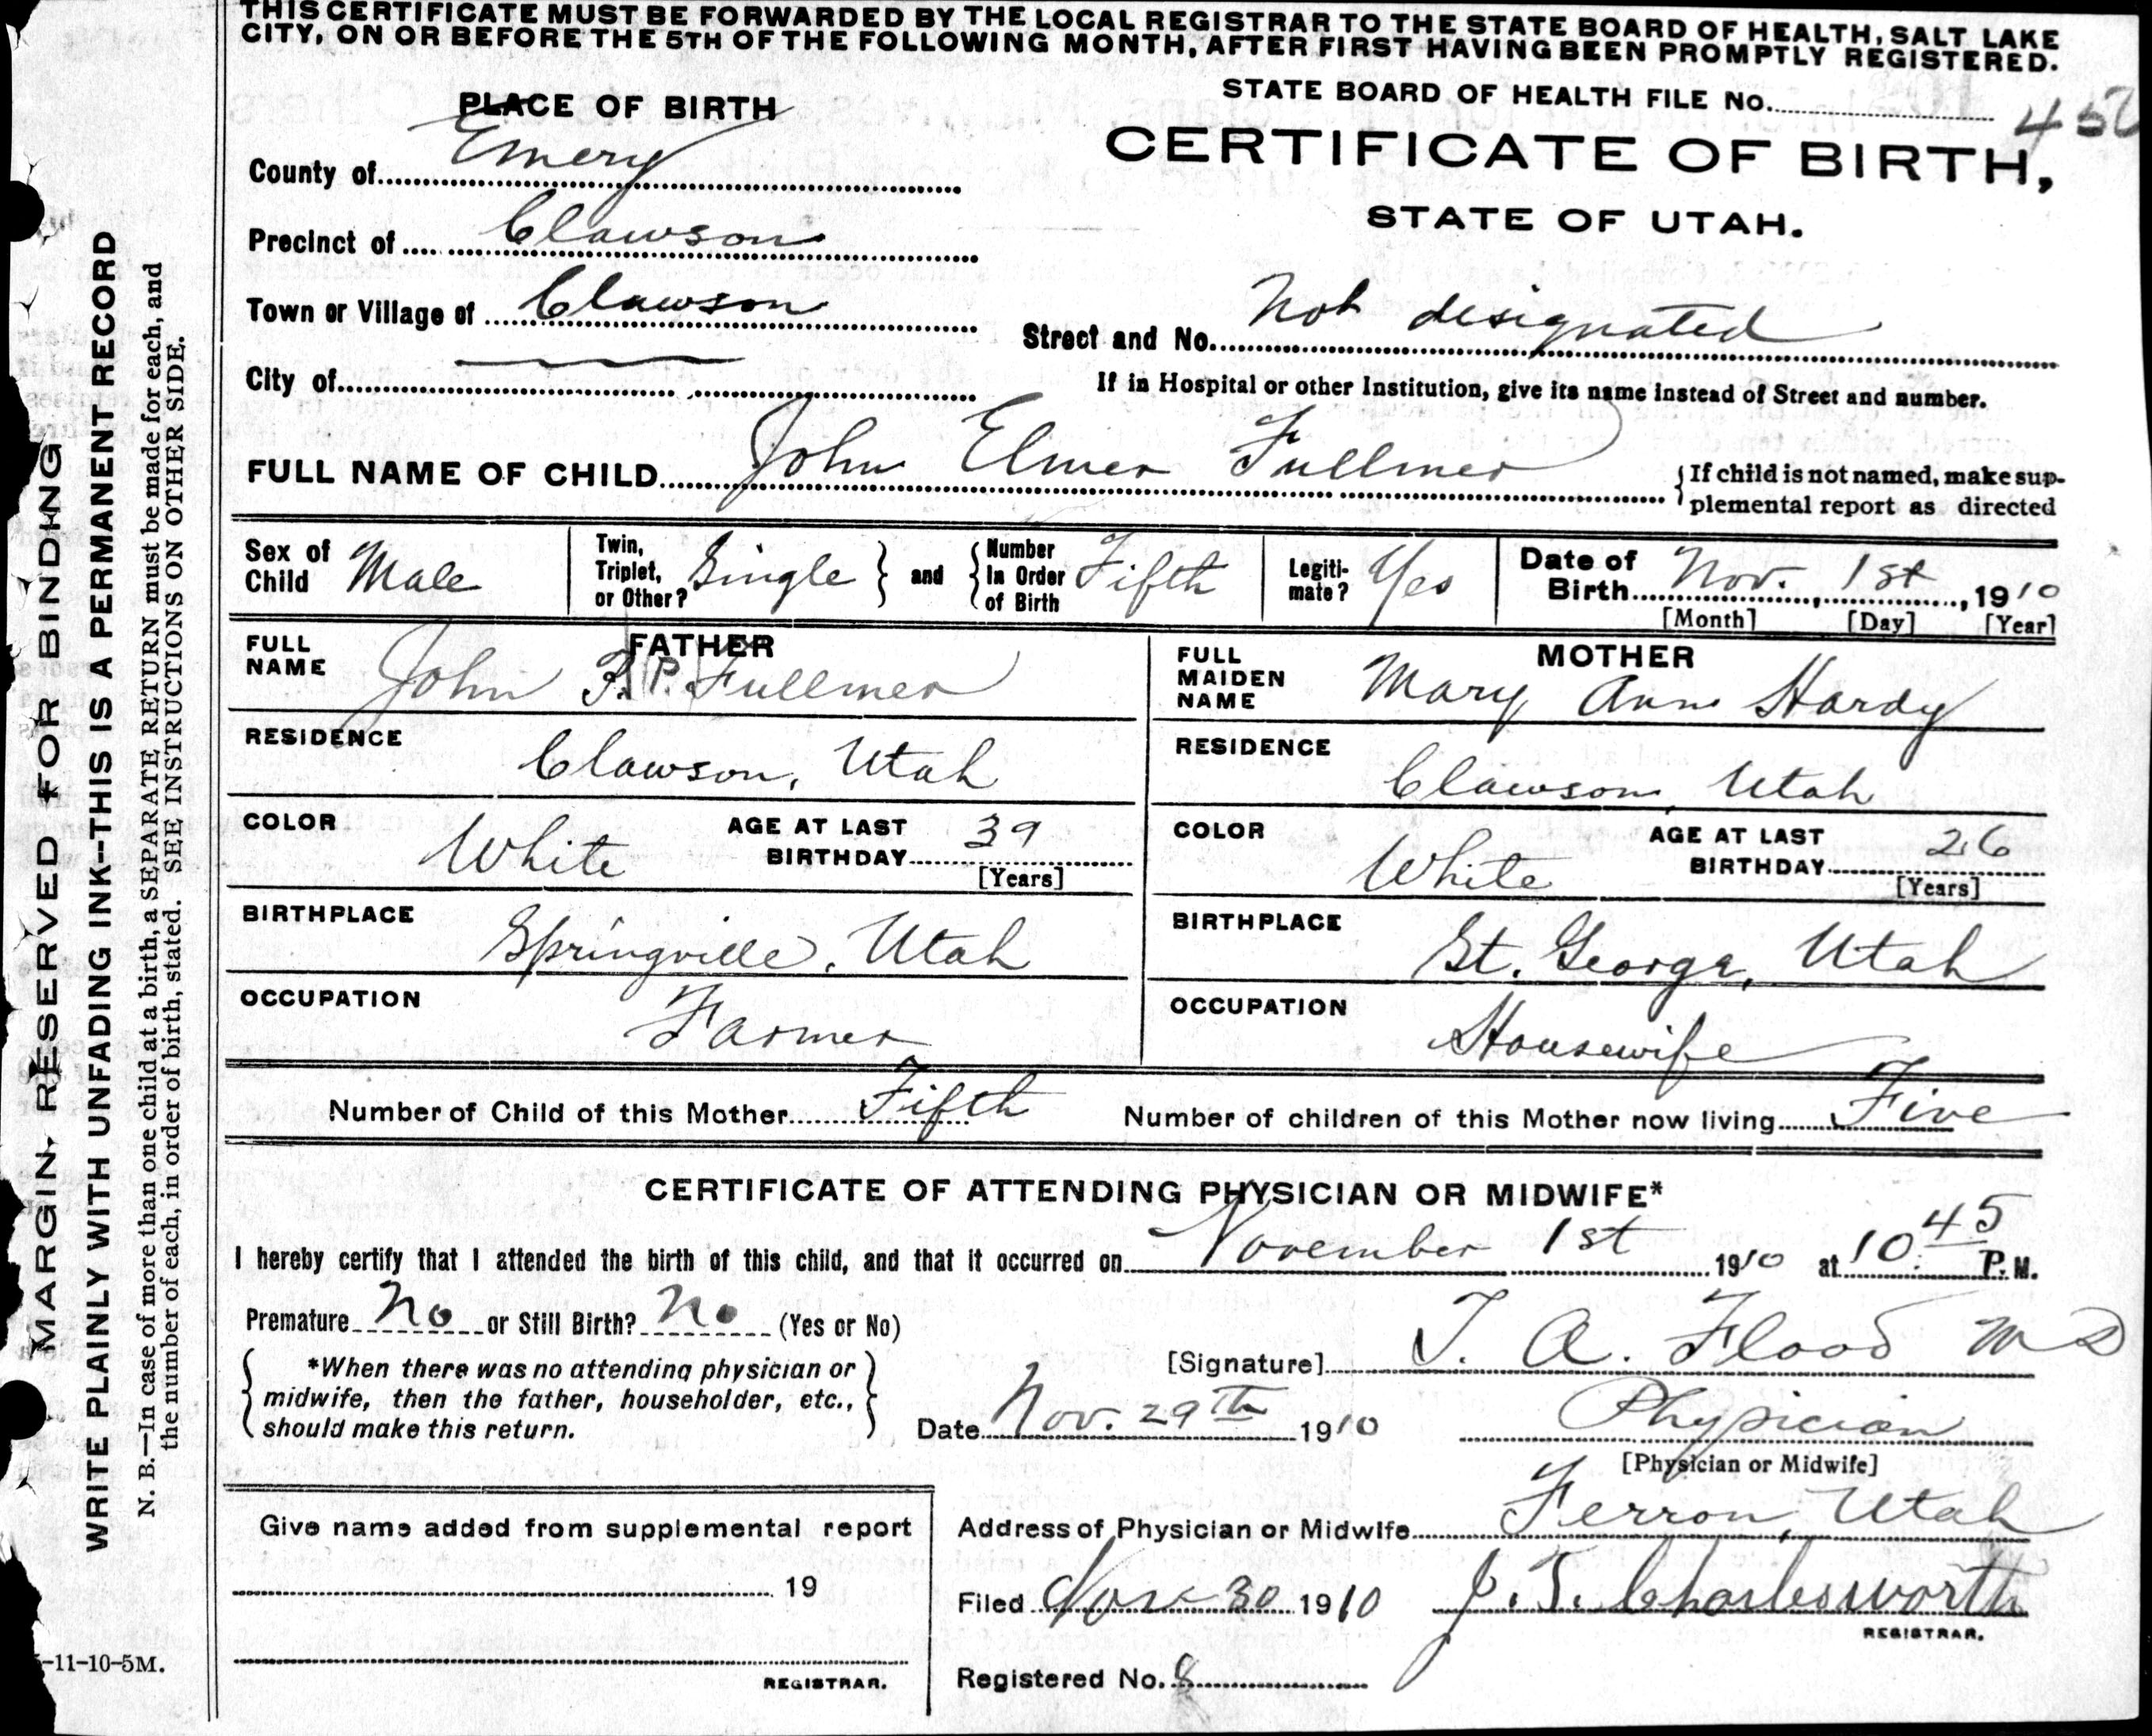 THIS CERTIFICATE MUST BE FORWARDED BY THE LOCAL REGISTRAR TO THE STATE BOARD OF HEALTH, SALT LAKE
CITY, ON OR BEFORE THE 5TH OF THE FOLLOWING MONTH, AFTER FIRST HAVING BEEN PROMPTLY REGISTERED.
STATE BOARD OF HEALTH FILE No.
PLACE OF BIRTH
CERTIFICATE OF BIRTH,
STATE OF UTAH.
County of Emery
Precinct of Clawson
Town or Village of Clawson
Street and No. Not designated
City of
If in Hospital or other Institution, give its name instead of Street and number.
FULL NAME OF CHILD John Elmer Fullmer
{If child is not named, make sup-
plemental report as directed
Sex of Child Male
Twin, Triplet, or Other? Single } and { Number In Order of Birth Fifth
Legiti-mate? Yes
Date of Birth Nov. 1st, 1910
[Month] [Day] [Year]
FATHER
FULL NAME John P. Fullmer
RESIDENCE
Clawson, Utah
COLOR White AGE AT LAST BIRTHDAY 39
[Years]
BIRTHPLACE
Springville, Utah
OCCUPATION
Farmer
MOTHER
FULL MAIDEN NAME Mary Ann Hardy
RESIDENCE
Clawson, Utah
COLOR White AGE AT LAST BIRTHDAY 26
[Years]
BIRTHPLACE
St. George, Utah
OCCUPATION
Housewife
Number of Child of this Mother Fifth Number of children of this Mother now living Five
CERTIFICATE OF ATTENDING PHYSICIAN OR MIDWIFE*
I hereby certify that I attended the birth of this child, and that it occurred on November 1st 1910 at 10:45 P. M.
Premature No or Still Birth? No (Yes or No)
{ *When there was no attending physician or
midwife, then the father, householder, etc.,
should make this return. }
[Signature] T. A. Flood M D
Date Nov. 29th 1910
Physician
[Physician or Midwife]
Address of Physician or Midwife Ferron, Utah
Give name added from supplemental report
19
REGISTRAR.
Filed Nov 30 1910 J. T. Charlesworth
REGISTRAR.
Registered No. 8
MARGIN RESERVED FOR BINDING
WRITE PLAINLY WITH UNFADING INK--THIS IS A PERMANENT RECORD
N. B.—In case of more than one child at a birth, a SEPARATE RETURN must be made for each, and
the number of each, in order of birth, stated. SEE INSTRUCTIONS ON OTHER SIDE.
-11-10-5M.